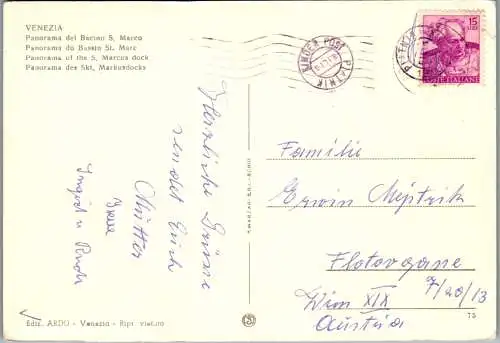 VENEZIA
Panorama del Bacino S. Marco
Panorama du Bassin St. Marc
Panorama of the S. Marcus dock
Panorama des Skt. Markusdocks
KINDER POST
PIATNIK
15
LIRE
POSTE ITALIANE
Herzliche Grüsse
sendet Euch
Mutter
Ingrid u Rudi
Familie
Erwin
Flotowgasse
7/20/13
Wien XIX
Austria
Ediz. ARDO - Venezia - Ripr. vietata
73